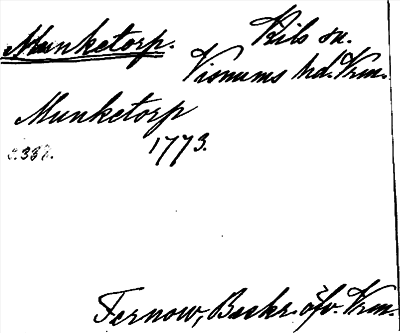 Munketorp. Kils sn.
Visnums hd. Vrm.
Munketorp
1773.
s. 337.
Fernow, Beskr. öfv. Vrm.